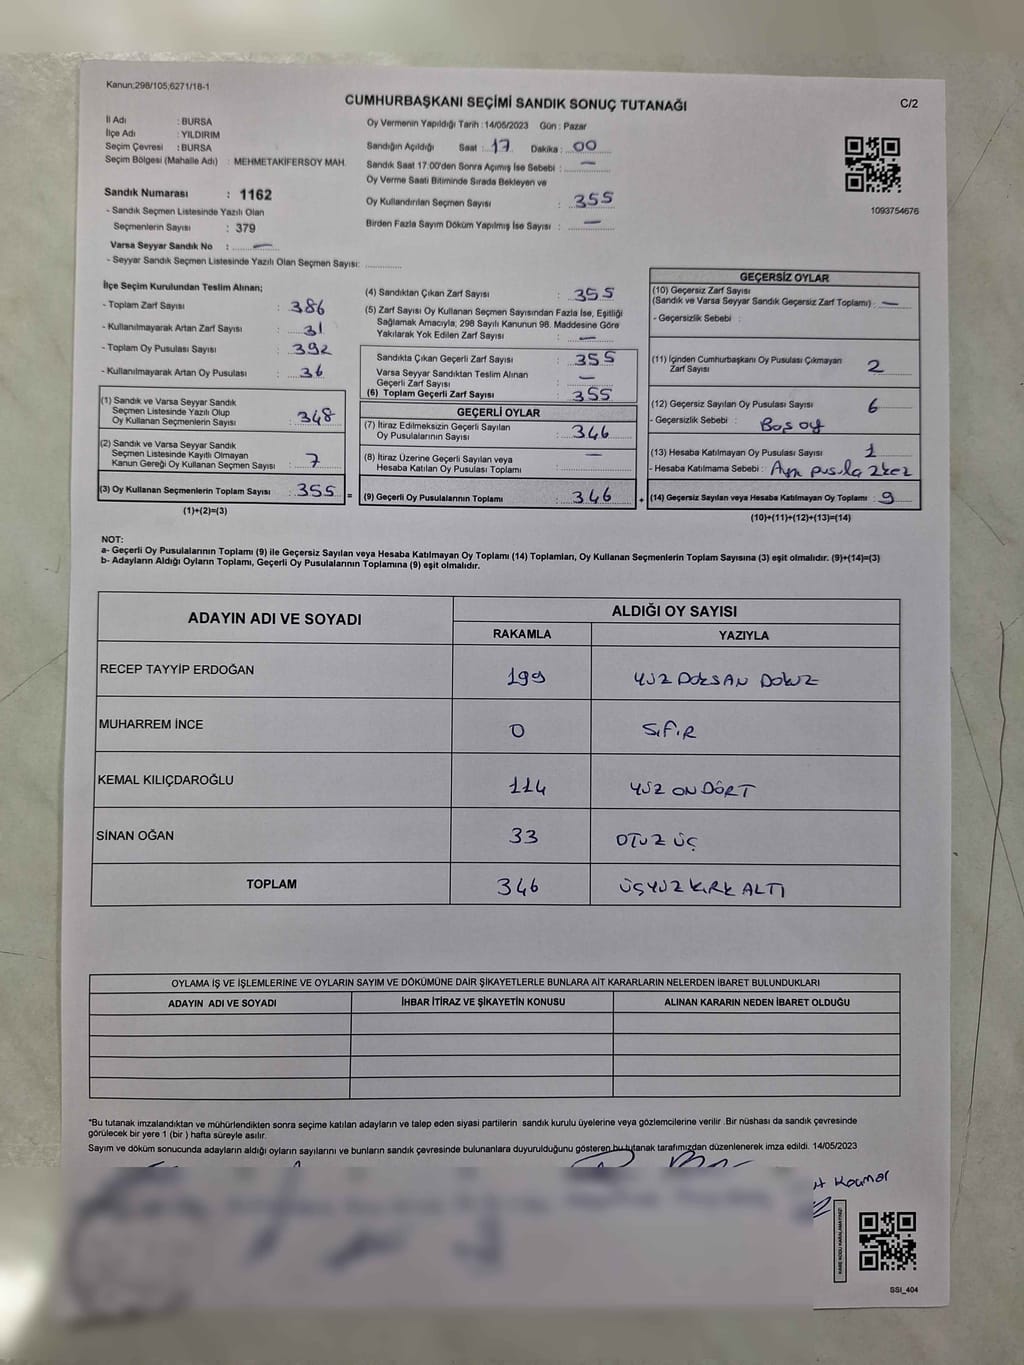 Kanun;298/105;6271/18-1
CUMHURBAŞKANI SEÇİMİ SANDIK SONUÇ TUTANAĞI
C/2
İl Adı : BURSA
İlçe Adı : YILDIRIM
Seçim Çevresi : BURSA
Seçim Bölgesi (Mahalle Adı) : MEHMETAKİFERSOY MAH.
Sandık Numarası : 1162
- Sandık Seçmen Listesinde Yazılı Olan
Seçmenlerin Sayısı : 379
Varsa Seyyar Sandık No : —
- Seyyar Sandık Seçmen Listesinde Yazılı Olan Seçmen Sayısı: ............
Oy Vermenin Yapıldığı Tarih : 14/05/2023 Gün : Pazar
Sandığın Açıldığı Saat : 17 Dakika : 00
Sandık Saat 17:00'den Sonra Açımış İse Sebebi : —
Oy Verme Saati Bitiminde Sırada Bekleyen ve
Oy Kullandırılan Seçmen Sayısı : 355
Birden Fazla Sayım Döküm Yapılmış İse Sayısı : —
1093754676
İlçe Seçim Kurulundan Teslim Alınan;
- Toplam Zarf Sayısı : 386
- Kullanılmayarak Artan Zarf Sayısı : 31
- Toplam Oy Pusulası Sayısı : 392
- Kullanılmayarak Artan Oy Pusulası : 36
(1) Sandık ve Varsa Seyyar Sandık
Seçmen Listesinde Yazılı Olup
Oy Kullanan Seçmenlerin Sayısı : 348
(2) Sandık ve Varsa Seyyar Sandık
Seçmen Listesinde Kayıtlı Olmayan
Kanun Gereği Oy Kullanan Seçmen Sayısı : 7
(3) Oy Kullanan Seçmenlerin Toplam Sayısı : 355 =
(1)+(2)=(3)
(4) Sandıktan Çıkan Zarf Sayısı : 355
(5) Zarf Sayısı Oy Kullanan Seçmen Sayısından Fazla İse, Eşitliği
Sağlamak Amacıyla; 298 Sayılı Kanunun 98. Maddesine Göre
Yakılarak Yok Edilen Zarf Sayısı : —
Sandıkta Çıkan Geçerli Zarf Sayısı : 355
Varsa Seyyar Sandıktan Teslim Alınan
Geçerli Zarf Sayısı : —
(6) Toplam Geçerli Zarf Sayısı : 355
GEÇERLİ OYLAR
(7) İtiraz Edilmeksizin Geçerli Sayılan
Oy Pusulalarının Sayısı : 346
(8) İtiraz Üzerine Geçerli Sayılan veya
Hesaba Katılan Oy Pusulası Toplamı : —
(9) Geçerli Oy Pusulalarının Toplamı : 346 +
GEÇERSİZ OYLAR
(10) Geçersiz Zarf Sayısı
(Sandık ve Varsa Seyyar Sandık Geçersiz Zarf Toplamı) : —
- Geçersizlik Sebebi :
(11) İçinden Cumhurbaşkanı Oy Pusulası Çıkmayan
Zarf Sayısı : 2
(12) Geçersiz Sayılan Oy Pusulası Sayısı : 6
- Geçersizlik Sebebi : Boş oy
(13) Hesaba Katılmayan Oy Pusulası Sayısı : 1
- Hesaba Katılmama Sebebi : Aynı pusula 2kez
(14) Geçersiz Sayılan veya Hesaba Katılmayan Oy Toplamı : 9
(10)+(11)+(12)+(13)=(14)
NOT:
a- Geçerli Oy Pusulalarının Toplamı (9) ile Geçersiz Sayılan veya Hesaba Katılmayan Oy Toplamı (14) Toplamları, Oy Kullanan Seçmenlerin Toplam Sayısına (3) eşit olmalıdır. (9)+(14)=(3)
b- Adayların Aldığı Oyların Toplamı, Geçerli Oy Pusulalarının Toplamına (9) eşit olmalıdır.
ADAYIN ADI VE SOYADI
ALDIĞI OY SAYISI
RAKAMLA YAZIYLA
RECEP TAYYİP ERDOĞAN 199 YÜZ DOKSAN DOKUZ
MUHARREM İNCE 0 SIFIR
KEMAL KILIÇDAROĞLU 114 YÜZ ON DÖRT
SİNAN OĞAN 33 OTUZ ÜÇ
TOPLAM 346 ÜÇYÜZ KIRK ALTI
OYLAMA İŞ VE İŞLEMLERİNE VE OYLARIN SAYIM VE DÖKÜMÜNE DAİR ŞİKAYETLERLE BUNLARA AİT KARARLARIN NELERDEN İBARET BULUNDUKLARI
ADAYIN ADI VE SOYADI İHBAR İTİRAZ VE ŞİKAYETİN KONUSU ALINAN KARARIN NEDEN İBARET OLDUĞU
*Bu tutanak imzalandıktan ve mühürlendikten sonra seçime katılan adayların ve talep eden siyasi partilerin sandık kurulu üyelerine veya gözlemcilerine verilir .Bir nüshası da sandık çevresinde
görülecek bir yere 1 (bir ) hafta süreyle asılır.
Sayım ve döküm sonucunda adayların aldığı oyların sayılarını ve bunların sandık çevresinde bulunanlara duyurulduğunu gösteren bu tutanak tarafımızdan düzenlenerek imza edildi. 14/05/2023
KARE KODU KARALAMAYINIZ!
SSI_404